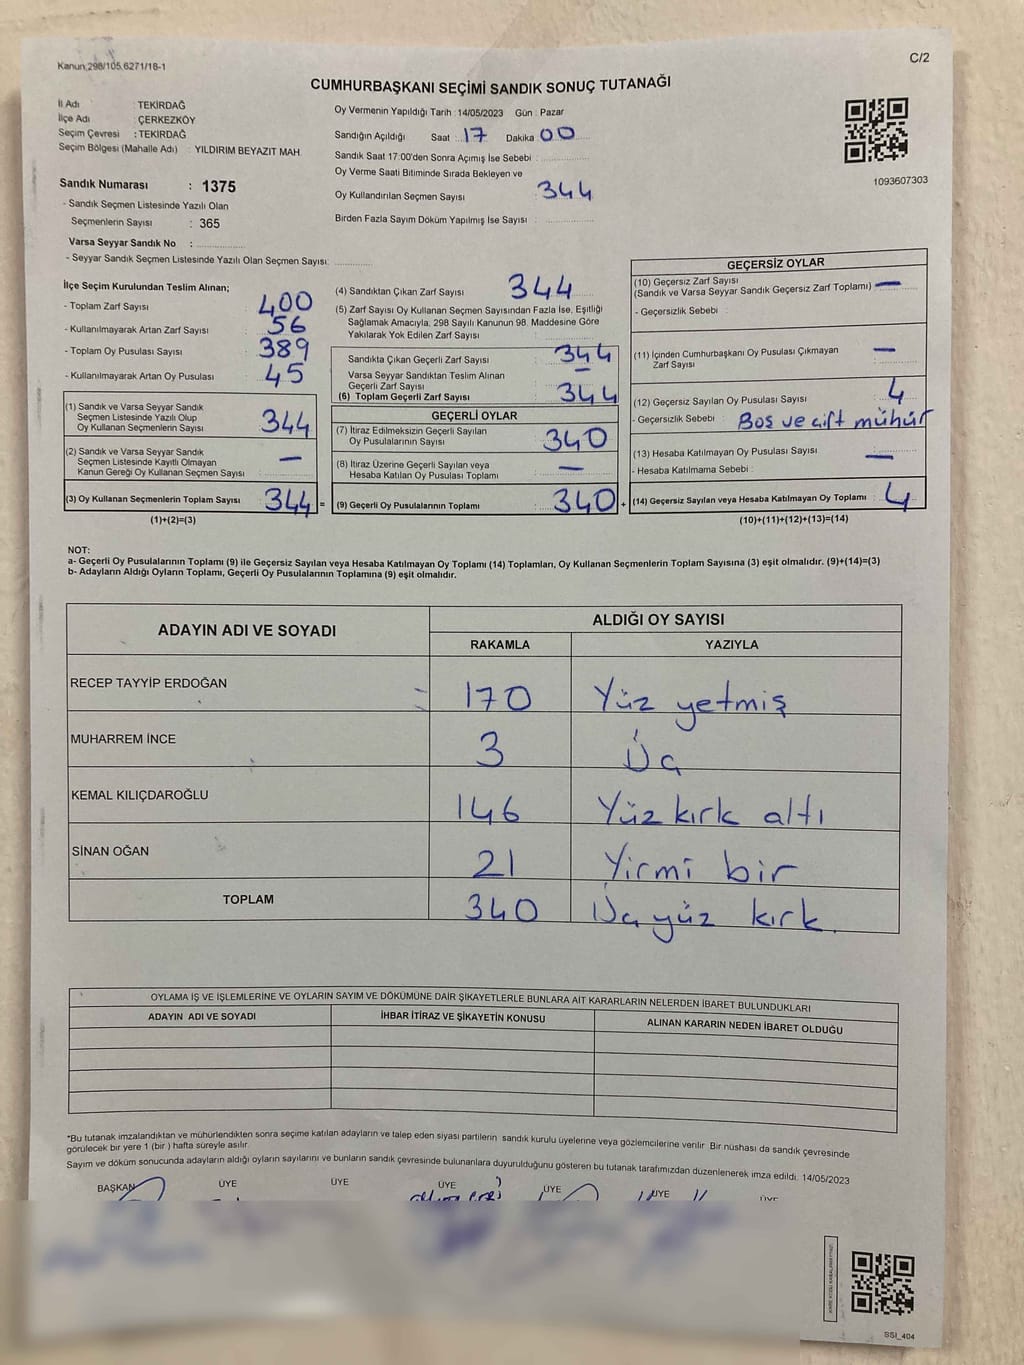 Kanun.298/105.6271/18-1
C/2
CUMHURBAŞKANI SEÇİMİ SANDIK SONUÇ TUTANAĞI
İl Adı : TEKİRDAĞ
İlçe Adı : ÇERKEZKÖY
Seçim Çevresi : TEKİRDAĞ
Seçim Bölgesi (Mahalle Adı) : YILDIRIM BEYAZIT MAH.
Sandık Numarası : 1375
- Sandık Seçmen Listesinde Yazılı Olan
Seçmenlerin Sayısı : 365
Varsa Seyyar Sandık No :
- Seyyar Sandık Seçmen Listesinde Yazılı Olan Seçmen Sayısı:
Oy Vermenin Yapıldığı Tarih :14/05/2023 Gün : Pazar
Sandığın Açıldığı Saat : 17 Dakika 00
Sandık Saat 17:00'den Sonra Açımış İse Sebebi :
Oy Verme Saati Bitiminde Sırada Bekleyen ve
Oy Kullandırılan Seçmen Sayısı : 344
Birden Fazla Sayım Döküm Yapılmış İse Sayısı :
1093607303
İlçe Seçim Kurulundan Teslim Alınan;
- Toplam Zarf Sayısı : 400
- Kullanılmayarak Artan Zarf Sayısı : 56
- Toplam Oy Pusulası Sayısı : 389
- Kullanılmayarak Artan Oy Pusulası : 45
(1) Sandık ve Varsa Seyyar Sandık
Seçmen Listesinde Yazılı Olup
Oy Kullanan Seçmenlerin Sayısı : 344
(2) Sandık ve Varsa Seyyar Sandık
Seçmen Listesinde Kayıtlı Olmayan
Kanun Gereği Oy Kullanan Seçmen Sayısı : —
(3) Oy Kullanan Seçmenlerin Toplam Sayısı : 344 =
(1)+(2)=(3)
(4) Sandıktan Çıkan Zarf Sayısı : 344
(5) Zarf Sayısı Oy Kullanan Seçmen Sayısından Fazla İse, Eşitliği
Sağlamak Amacıyla; 298 Sayılı Kanunun 98. Maddesine Göre
Yakılarak Yok Edilen Zarf Sayısı :
Sandıkta Çıkan Geçerli Zarf Sayısı : 344
Varsa Seyyar Sandıktan Teslim Alınan
Geçerli Zarf Sayısı : —
(6) Toplam Geçerli Zarf Sayısı : 344
GEÇERLİ OYLAR
(7) İtiraz Edilmeksizin Geçerli Sayılan
Oy Pusulalarının Sayısı : 340
(8) İtiraz Üzerine Geçerli Sayılan veya
Hesaba Katılan Oy Pusulası Toplamı : —
(9) Geçerli Oy Pusulalarının Toplamı : 340 +
GEÇERSİZ OYLAR
(10) Geçersiz Zarf Sayısı
(Sandık ve Varsa Seyyar Sandık Geçersiz Zarf Toplamı) : —
- Geçersizlik Sebebi :
(11) İçinden Cumhurbaşkanı Oy Pusulası Çıkmayan
Zarf Sayısı : —
(12) Geçersiz Sayılan Oy Pusulası Sayısı : 4
- Geçersizlik Sebebi : Boş ve çift mühür
(13) Hesaba Katılmayan Oy Pusulası Sayısı : —
- Hesaba Katılmama Sebebi :
(14) Geçersiz Sayılan veya Hesaba Katılmayan Oy Toplamı : 4
(10)+(11)+(12)+(13)=(14)
NOT:
a- Geçerli Oy Pusulalarının Toplamı (9) ile Geçersiz Sayılan veya Hesaba Katılmayan Oy Toplamı (14) Toplamları, Oy Kullanan Seçmenlerin Toplam Sayısına (3) eşit olmalıdır. (9)+(14)=(3)
b- Adayların Aldığı Oyların Toplamı, Geçerli Oy Pusulalarının Toplamına (9) eşit olmalıdır.
ADAYIN ADI VE SOYADI
ALDIĞI OY SAYISI
RAKAMLA YAZIYLA
RECEP TAYYİP ERDOĞAN 170 Yüz yetmiş
MUHARREM İNCE 3 Üç
KEMAL KILIÇDAROĞLU 146 Yüz kırk altı
SİNAN OĞAN 21 Yirmi bir
TOPLAM 340 Üç yüz kırk.
OYLAMA İŞ VE İŞLEMLERİNE VE OYLARIN SAYIM VE DÖKÜMÜNE DAİR ŞİKAYETLERLE BUNLARA AİT KARARLARIN NELERDEN İBARET BULUNDUKLARI
ADAYIN ADI VE SOYADI İHBAR İTİRAZ VE ŞİKAYETİN KONUSU ALINAN KARARIN NEDEN İBARET OLDUĞU
*Bu tutanak imzalandıktan ve mühürlendikten sonra seçime katılan adayların ve talep eden siyasi partilerin sandık kurulu üyelerine veya gözlemcilerine verilir. Bir nüshası da sandık çevresinde
görülecek bir yere 1 (bir ) hafta süreyle asılır.
Sayım ve döküm sonucunda adayların aldığı oyların sayılarını ve bunların sandık çevresinde bulunanlara duyurulduğunu gösteren bu tutanak tarafımızdan düzenlenerek imza edildi. 14/05/2023
BAŞKAN ÜYE ÜYE ÜYE ÜYE ÜYE ÜYE
SSI_404